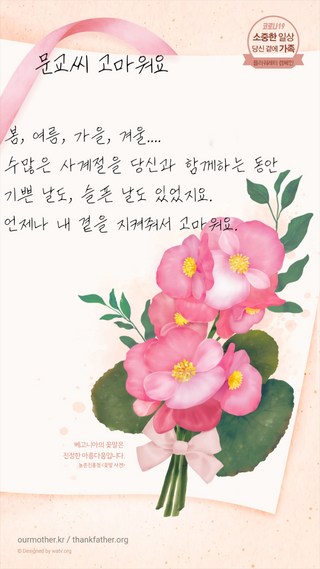 코로나19
소중한 일상
당신 곁에 가족
문교씨 고마워요
봄, 여름, 가을, 겨울....
수많은 사계절을 당신과 함께하는 동안
기쁜 날도, 슬픈 날도 있었지요.
언제나 내 곁을 지켜줘서 고마워요.
베고니아의 꽃말은
진정한 아름다움입니다.
ourmother.kr / thankfather.org